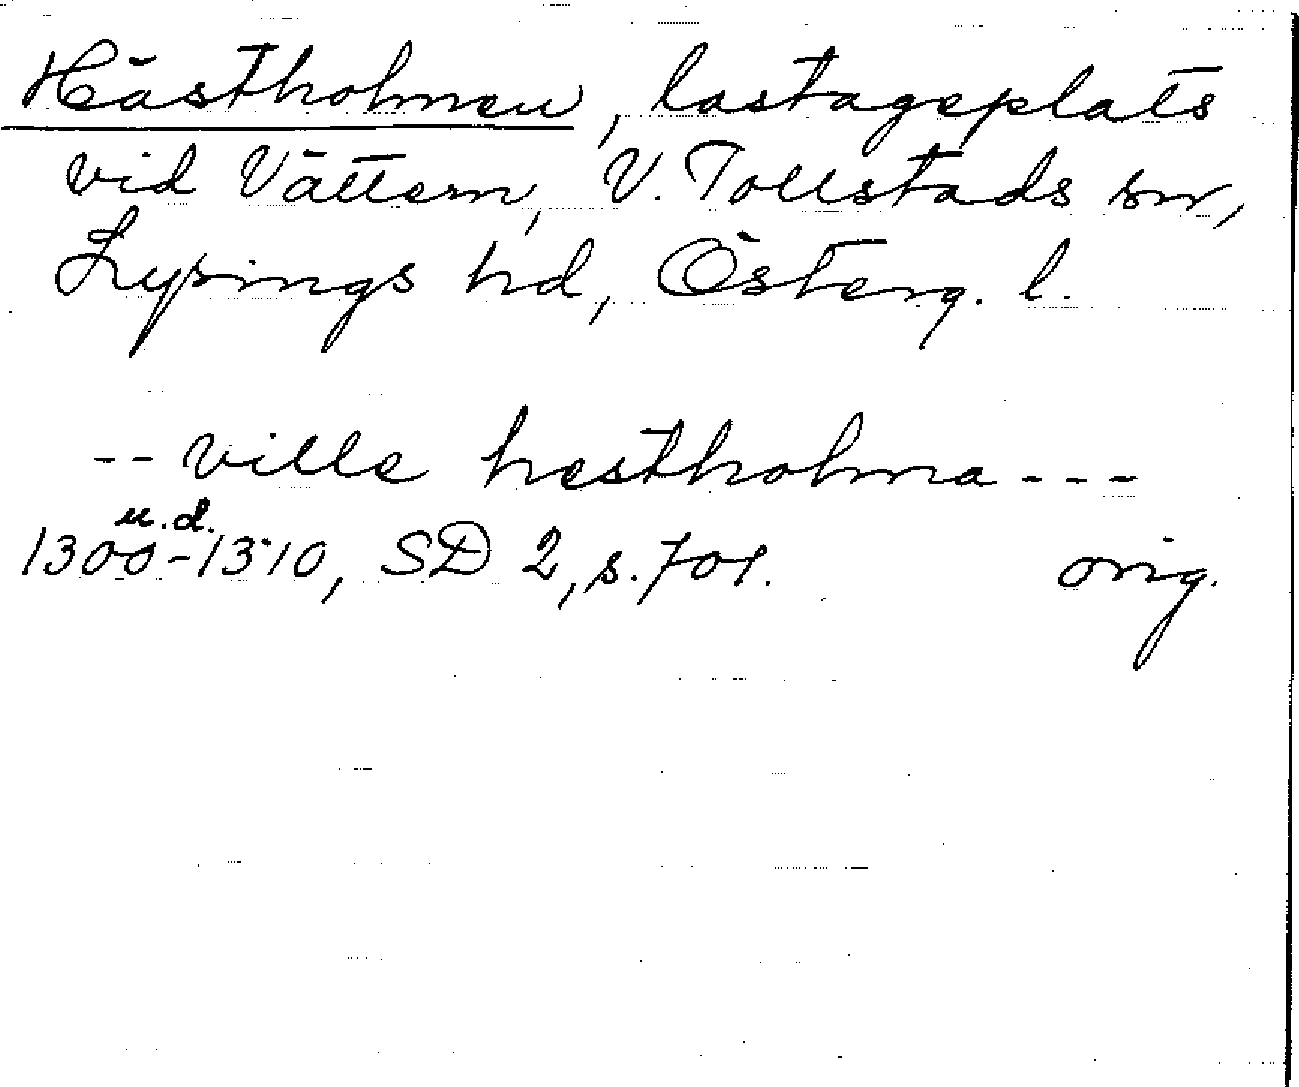 Hästholmen, lastageplats
vid Vättern, V. Tollstads sn,
Lysings hd, Österg. l.
-- ville hestholma ---
u.d.
1300-1310, SD 2, s. 701. orig.